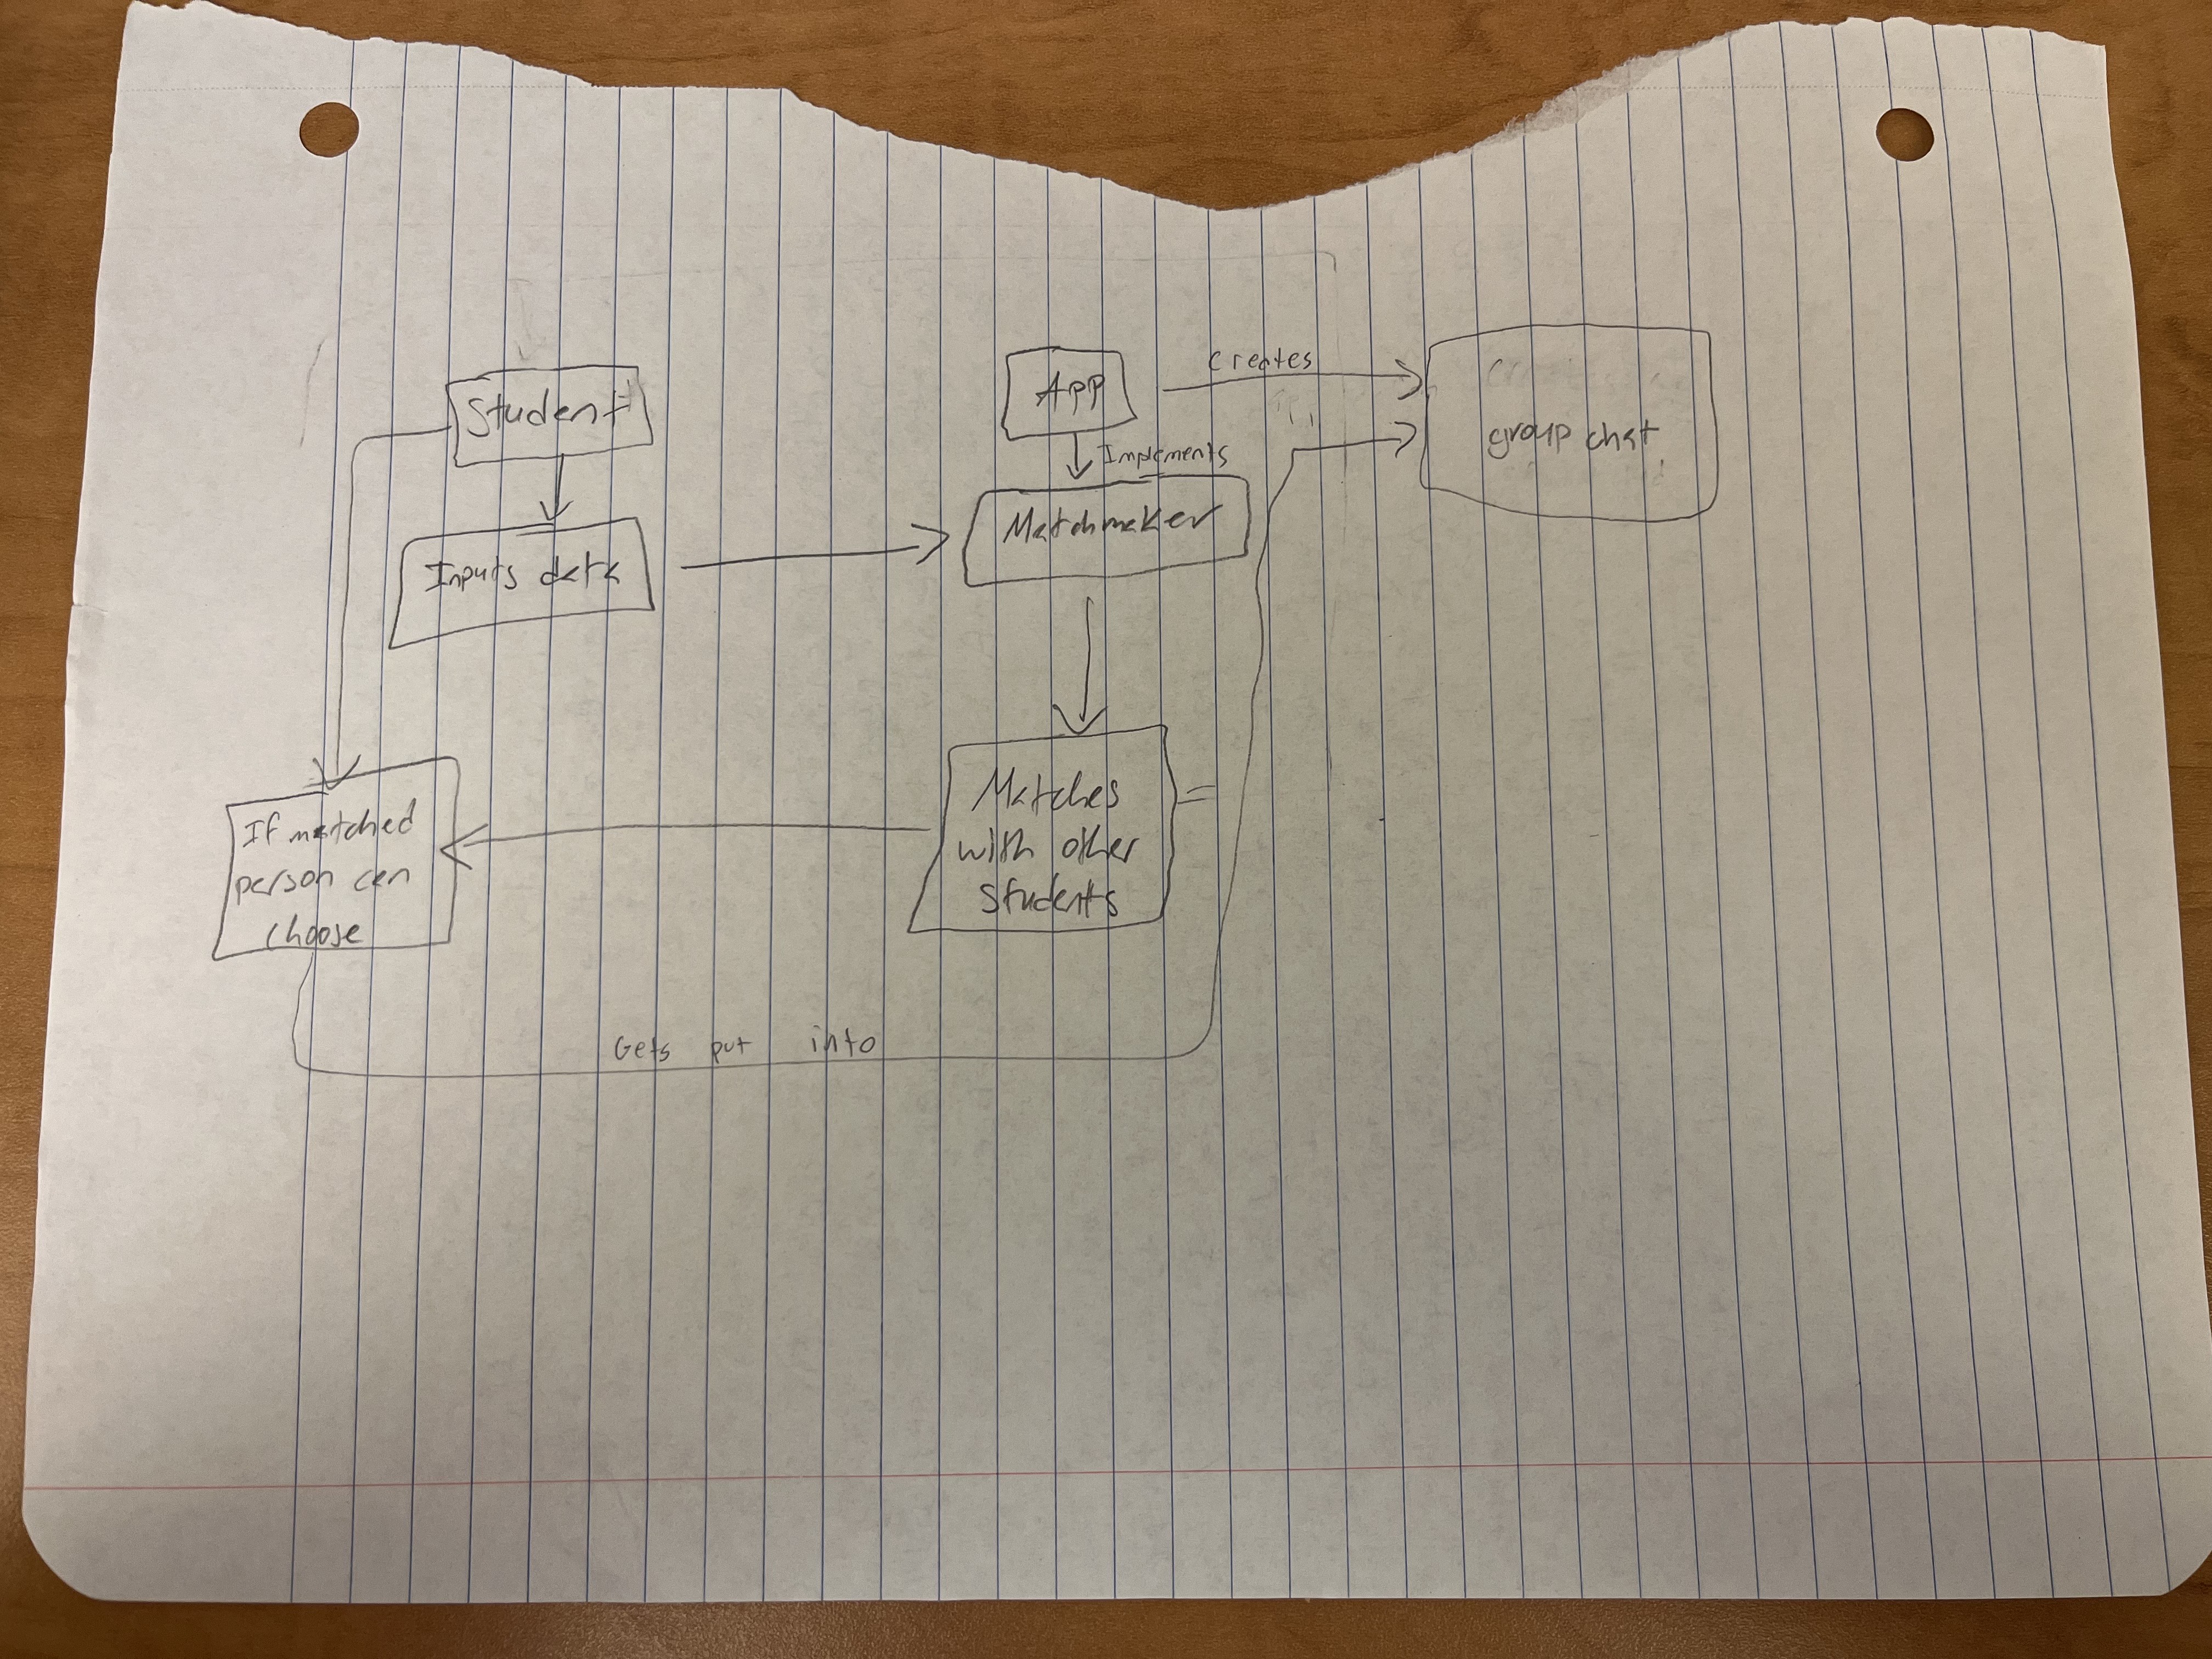 Student
Inputs data
App
Creates
Implements
Matchmaker
group chat
Matches
with other
Students
If matched
person can
choose
Gets put into